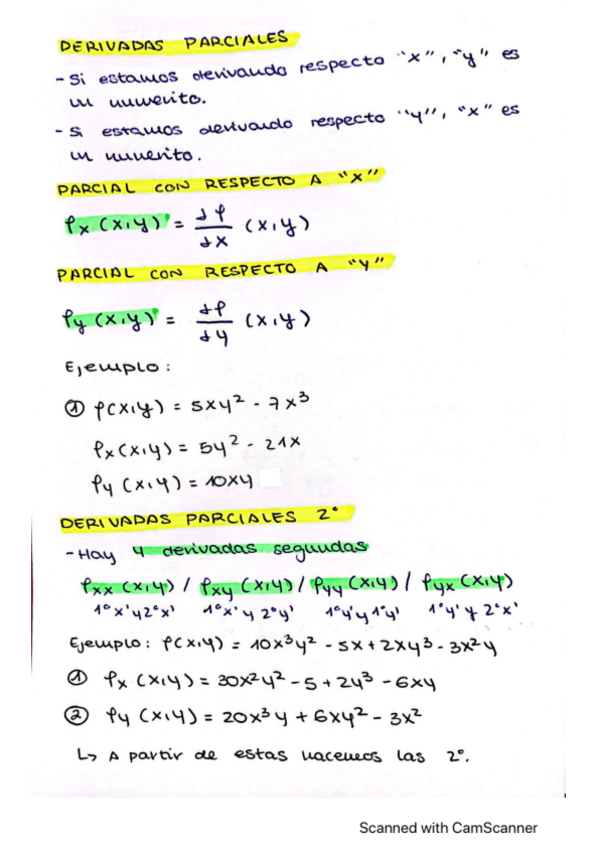 DERIVADAS PARCIALES
- Si estamos derivando respecto "x", "y" es
un numerito.
- Si estamos derivando respecto "y", "x" es
un numerito.
PARCIAL CON RESPECTO A "X"
fx (x,y) = ∂f/∂x (x,y)
PARCIAL CON RESPECTO A "Y"
fy (x,y) = ∂f/∂y (x,y)
Ejemplo:
① f(x,y) = 5xy² - 7x³
fx(x,y) = 5y² - 21x
fy (x,y) = 10xy
DERIVADAS PARCIALES 2º
- Hay 4 derivadas segundas
fxx (x,y) / fxy (x,y) / fyy (x,y) / fyx (x,y)
1º'x' y 2º'x' 1º'x' y 2º'y' 1º'y' y 1º'y' 1º'y' y 2º'x'
Ejemplo: f(x,y) = 10x³y² - 5x + 2xy³ - 3x²y
① fx (x,y) = 30x²y² - 5 + 2y³ - 6xy
② fy (x,y) = 20x³y + 6xy² - 3x²
↳ A partir de estas hacemos las 2º.
Scanned with CamScanner